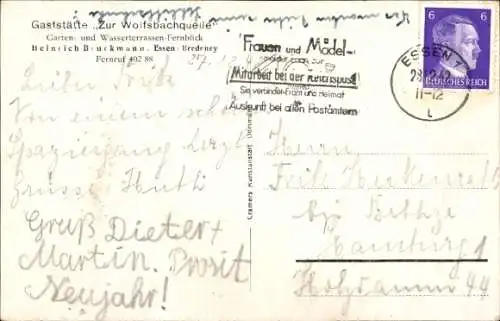 Gaststätte „Zur Wolfsbachquelle"
Garten- und Wasserterrassen-Fernblick
Heinrich Bruckmann, Essen-Bredeney
Fernruf 402 88
27.12.4
Lieber Fritz
Von einem schö
Spaziergang herzl
Grüsse Huth
Gruß Dieter +
Martin. Prosit
Neujahr!
Frauen und Mädel
Mitarbeit bei der Reichspost
Sie verbindet Front und Heimat
Auskunft bei allen Postämtern
ESSEN 7
11-12
l
6 6
DEUTSCHES REICH
Cramers Kunstanstalt Dortmund
Herrn
Fritz
b/ Bethge
Hamburg 1
Holzdamm 44